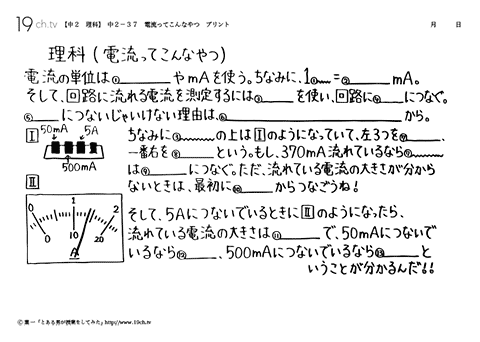 19ch.tv 【中2 理科】 中2-37 電流ってこんなやつ プリント 月 日
理科(電流ってこんなやつ)
電流の単位は①______やmAを使う。ちなみに、1①______=②______mA。
そして、回路に流れる電流を測定するには③______を使い、回路に④______につなぐ。
⑤______につないじゃいけない理由は⑥______から。
Ⅰ ちなみに③______の上はⅠのようになっていて、左3つを⑦______、
50mA 5A
500mA
一番右を⑧______という。もし、370mA流れているなら⑨______
は⑨______につなぐ。ただ、流れている電流の大きさが分から
ないときは、最初に⑩______からつなごうね!
Ⅱ
0 1 2
0 10 20
A
そして、5AにつないでいるときにⅡのようになったら、
流れている電流の大きさは⑪______で、50mAにつないで
いるなら⑫______、500mAにつないでいるなら⑬______と
いうことが分かるんだ!!
© 葉一「とある男が授業をしてみた」http://www.19ch.tv